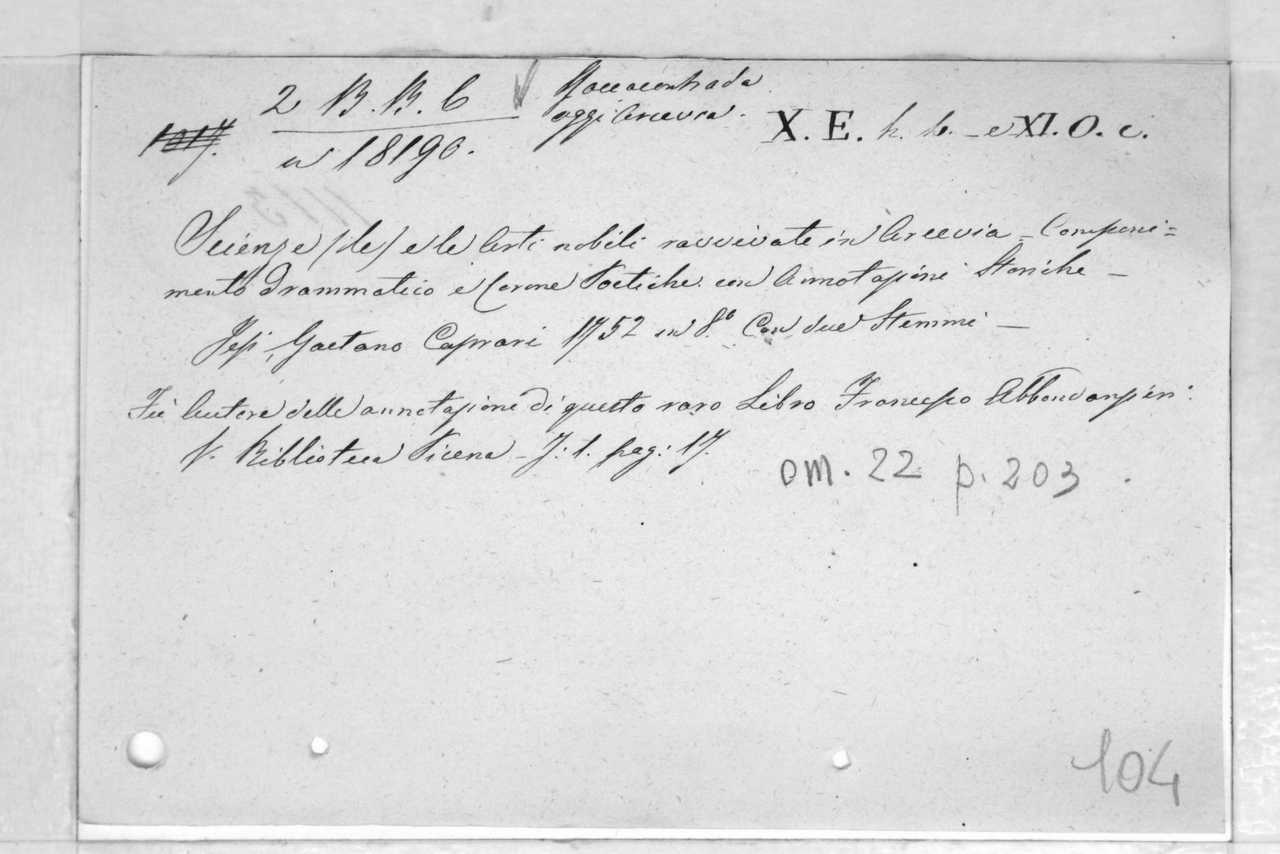 2 B. B. C
Roccacontrada
oggi Arcevia.
X. E. h. b. _ e XI. O. c.
n 18190.
Scienze (le) e le Arti nobili ravvivate in Arcevia _ Componi=
mento Drammatico e Corone Poetiche con Annotazioni Storiche _
Jesi, Gaetano Caprari 1752 in 8.° Con due Stemmi _
Fù Autore delle annotazione di questo raro Libro Francesco Abbondanzieri
V. Biblioteca Picena _ T. 1. pag: 17.
om. 22 p. 203.
104